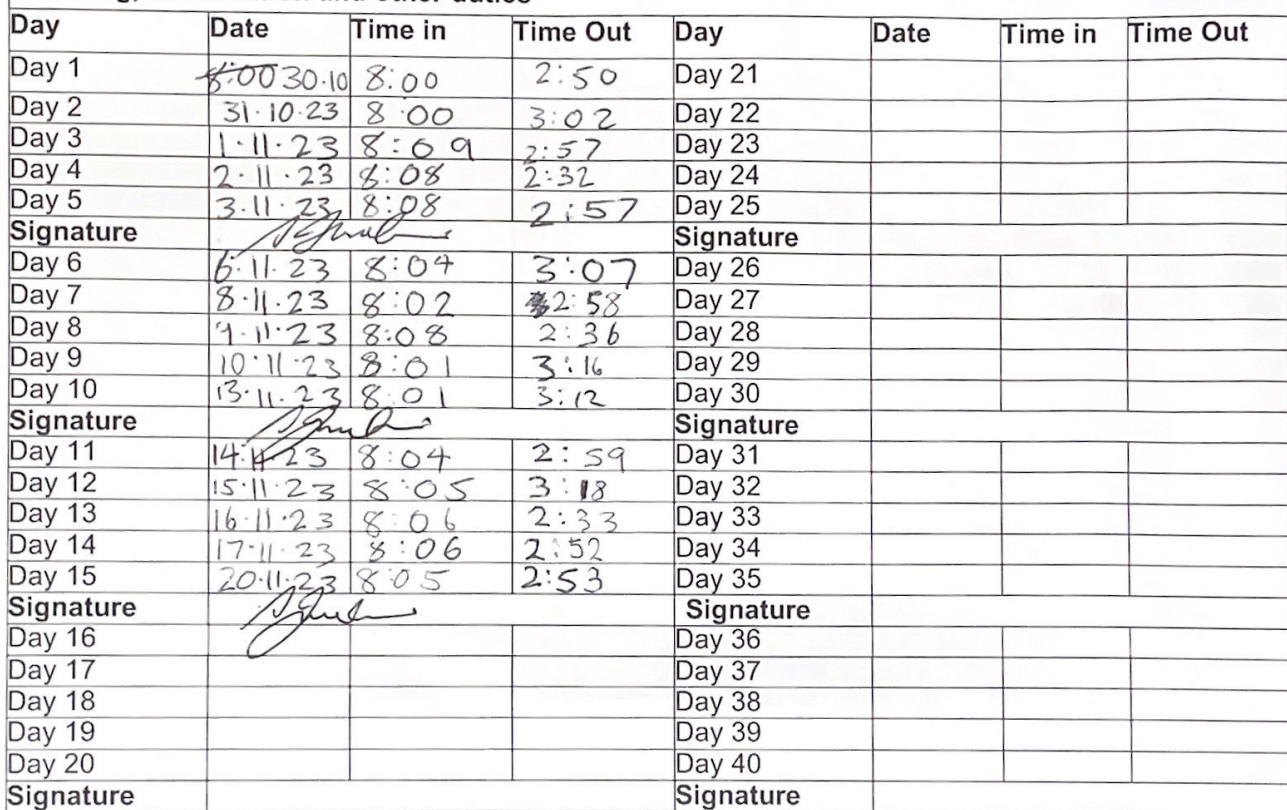 and other duties
Day Date Time in Time Out Day Date Time in Time Out
Day 1 8:00 30.10 8:00 2:50 Day 21
Day 2 31.10.23 8:00 3:02 Day 22
Day 3 1.11.23 8:09 2:57 Day 23
Day 4 2.11.23 8:08 2:32 Day 24
Day 5 3.11.23 8:08 2:57 Day 25
Signature Signature
Day 6 6.11.23 8:04 3:07 Day 26
Day 7 8.11.23 8:02 2:58 Day 27
Day 8 9.11.23 8:08 2:36 Day 28
Day 9 10.11.23 8:01 3:16 Day 29
Day 10 13.11.23 8:01 3:12 Day 30
Signature Signature
Day 11 14.11.23 8:04 2:59 Day 31
Day 12 15.11.23 8:05 3:18 Day 32
Day 13 16.11.23 8:06 2:33 Day 33
Day 14 17.11.23 8:06 2:52 Day 34
Day 15 20.11.23 8:05 2:53 Day 35
Signature Signature
Day 16 Day 36
Day 17 Day 37
Day 18 Day 38
Day 19 Day 39
Day 20 Day 40
Signature Signature